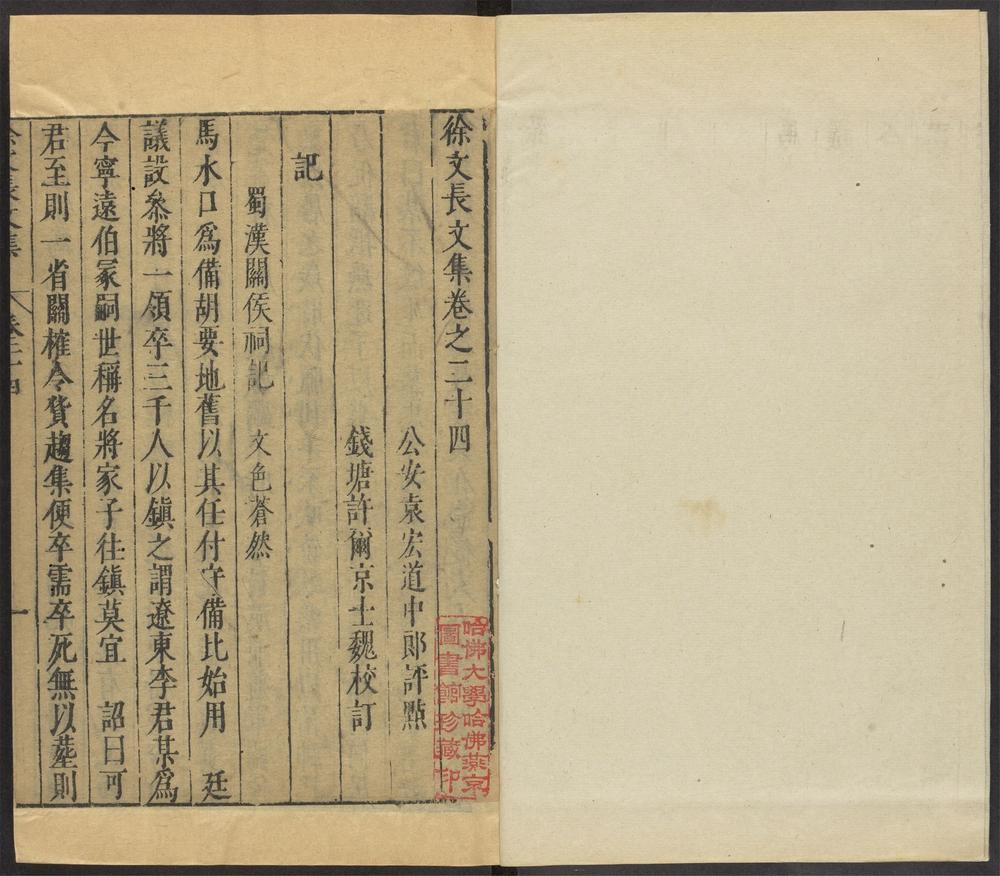 徐文長文集卷之二十四
公安袁宏道中郎評點
錢塘許爾京士魏校訂
記
蜀漢關侯祠記 文色蒼然
馬水口爲備胡要地舊以其任付守備比始用 廷
議設叅將一領卒三千人以鎮之謂遼東李君某爲
今寧遠伯冢嗣世稱名將家子往鎮莫宜 詔曰可
君至則一省關榷令貨趨集便卒需卒死無以塟則
一
哈佛大學哈佛燕京
圖書館珍藏印